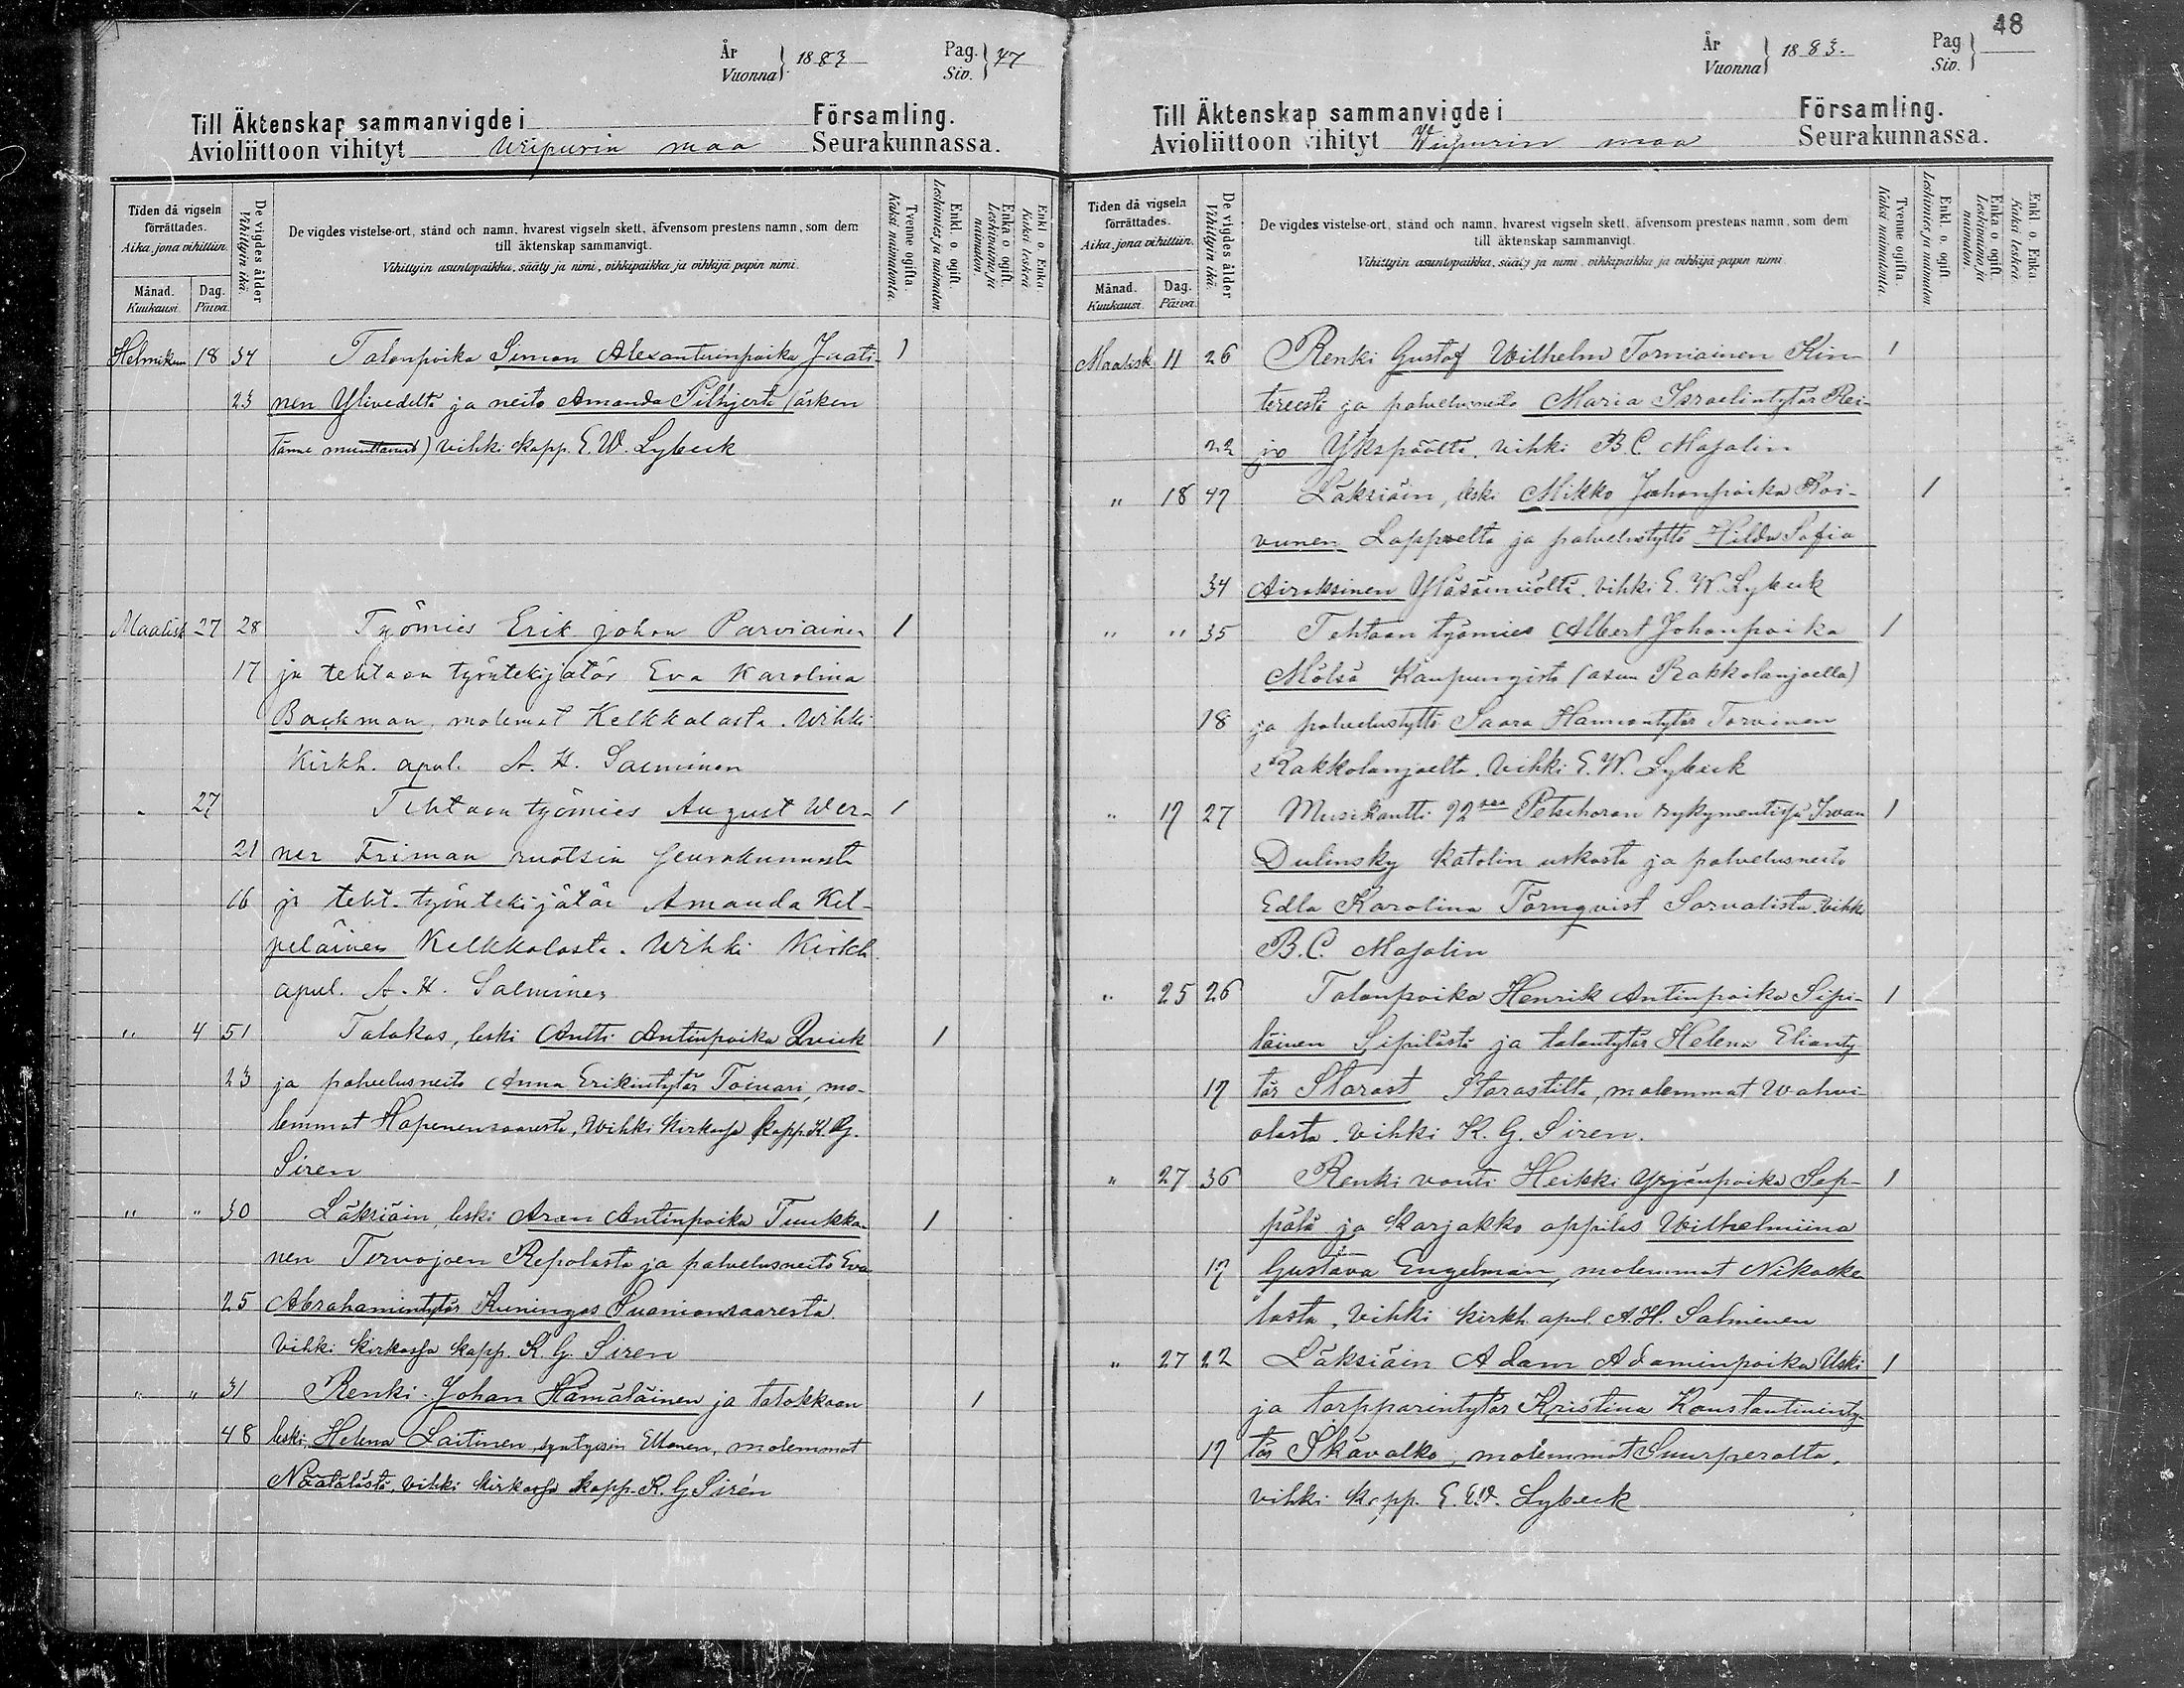 År Vuonna 1883 Pag. Siv. 47
Till Äktenskap sammanvigde i Församling.
Avioliittoon vihityt Wiipurin maa Seurakunnassa.
Tiden då vigseln förrättades.
Aika, jona vihittiin.
Månad. Kuukausi.
Dag. Päivä.
De vigdes ålder
Vihittyin ikä.
De vigdes vistelse-ort, stånd och namn, hvarest vigseln skett, äfvensom prestens namn, som dem
till äktenskap sammanvigt.
Vihittyin asuntopaikka, sääty ja nimi, vihkipaikka ja vihkijä papin nimi.
Tvenne ogifta.
Kaksi naimatonta.
Enkl. o. ogift.
Leskimies ja naimaton
Enka o. ogift.
Leskivaimo ja naimaton.
Enkl. o. Enka.
Kaksi leskeä.
Helmikuu 18 34 Talonpoika Simon Alexanterinpoika Juati- 1
23 nen Ylivedeltä ja neito Amanda Pilhjerta (äsken
tänne muuttanut) vihki kapp. E. W. Lybeck
Maalisk 27 28 Työmies Erik Johan Parviainen 1
17 ja tehtaan työntekijätär Eva Karolina
Backman, molemat Kelkkalasta. Wihki
Kirkh. apul. A. H. Salminen
" 27 Tehtaan työmies August Wer- 1
21 ner Friman ruotsin seurakunnasta
16 ja teht. työntekijätär Amanda Kel-
peläinen Kelkkalasta. Wihki Kirkh.
apul. A. H. Salminen
" 4 51 Talokas, leski Antti Antinpoika Qvick 1
23 ja palvelusneito Anna Erikintytär Toivari, mo-
lemmat Hapenensaaresta, Wihki kirkossa kapp. K. G.
Siren
" " 30 Läksiäin, leski Aron Antinpoika Tuukka- 1
nen Tervajoen Repolasta ja palvelusneito Eva
25 Abrahamintytär Kuningas Suonionsaaresta.
Vihki kirkossa kapp. K. G. Siren
" " 31 Renki Johan Hämäläinen ja talokkaan 1
48 leski, Helena Laitinen, syntyisin Ellonen, molemmat
Näätälästä, vihki kirkossa kapp. K. G Sirén
48
År Vuonna 1883. Pag Siv.
Till Äktenskap sammanvigde i Församling.
Avioliittoon vihityt Wiipurin maa Seurakunnassa.
Tiden då vigseln förrättades.
Aika, jona vihittiin.
Månad. Kuukausi.
Dag. Päivä.
De vigdes ålder
Vihittyin ikä.
De vigdes vistelse-ort, stånd och namn, hvarest vigseln skett, äfvensom prestens namn, som dem
till äktenskap sammanvigt.
Vihittyin asuntopaikka, sääty ja nimi, vihkipaikka ja vihkijä papin nimi.
Tvenne ogifta.
Kaksi naimatonta.
Enkl. o. ogift.
Leskimies ja naimaton
Enka o. ogift.
Leskivaimo ja naimaton.
Enkl. o. Enka.
Kaksi leskeä.
Maalisk 11 26 Renki Gustaf Wilhelm Torniainen Kin- 1
tereestä ja palvelusneito Maria Israelintytär Rei-
22 jo Ykspäältä. vihki B. C Majalin
" 18 47 Läksiäin, leski Mikko Juhonpoika Roi- 1
vunen Lappeelta ja palvelustyttö Hilda Sofia
34 Airaksinen Yläsämiöltä. vihki E. W. Lybeck
" " 35 Tehtaan työmies Albert Johanpoika 1
Mölsä Kaupungista (asuu Rakkolanjoella)
18 ja palvelustyttö Saara Hannontytär Torvinen
Rakkolanjoelta. vihki E. W. Lybeck
" 17 27 Musikantti 92sea Petschoran rykymentissä Iwan 1
Dulinsky katolin uskosta ja palvelusneito
Edla Karolina Törnqvist Sorvalista. vihki
B. C. Majalin
" 25 26 Talonpoika Henrik Antinpoika Sipi- 1
läinen Sipilästä ja talontytär Helena Elianty
17 tär Starast Starastilta, molemmat Wahvi-
alasta. vihki K. G. Siren.
" 27 36 Renki vouti Heikki Yrjönpoika Sep- 1
pälä ja karjakko oppilas Wilhelmiina
17 Gustava Engelman, molemmat Nikoske-
lasta, vihki kirkh. apul. A. H. Salminen
" 27 22 Läksiäin Adam Adaminpoika Uski 1
ja torpparintytär Kristina Konstantininty-
17 tär Skävalko, molemmat Suurperolta.
vihki kapp. E. W. Lybeck